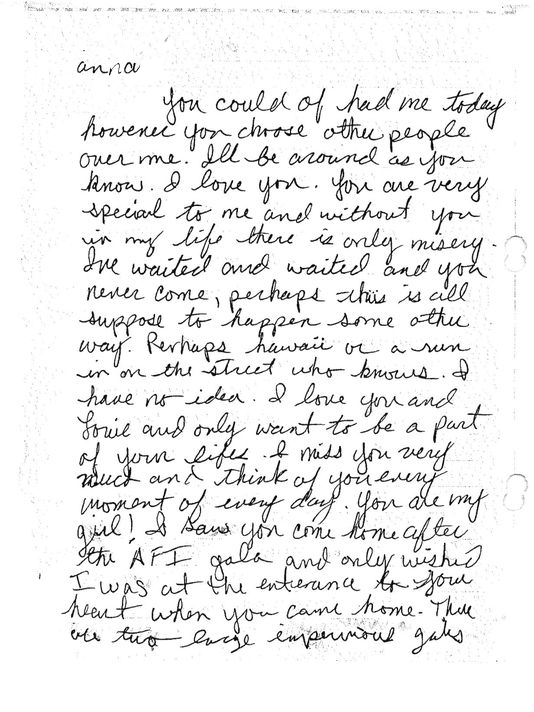 anna
You could of had me today
however you choose other people
over me. Ill be around as you
know. I love you. You are very
special to me and without you
in my life there is only misery.
Ive waited and waited and you
never come, perhaps this is all
suppose to happen some other
way. Perhaps hawaii or a run
in on the street who knows. I
have no idea. I love you and
Louie and only want to be a part
of your lifes. I miss you very
much and think of you every
moment of every day. You are my
girl! I saw you come home after
the AFI gala and only wished
I was at the enterance to your
heart when you came home. There
are two large impervious gates